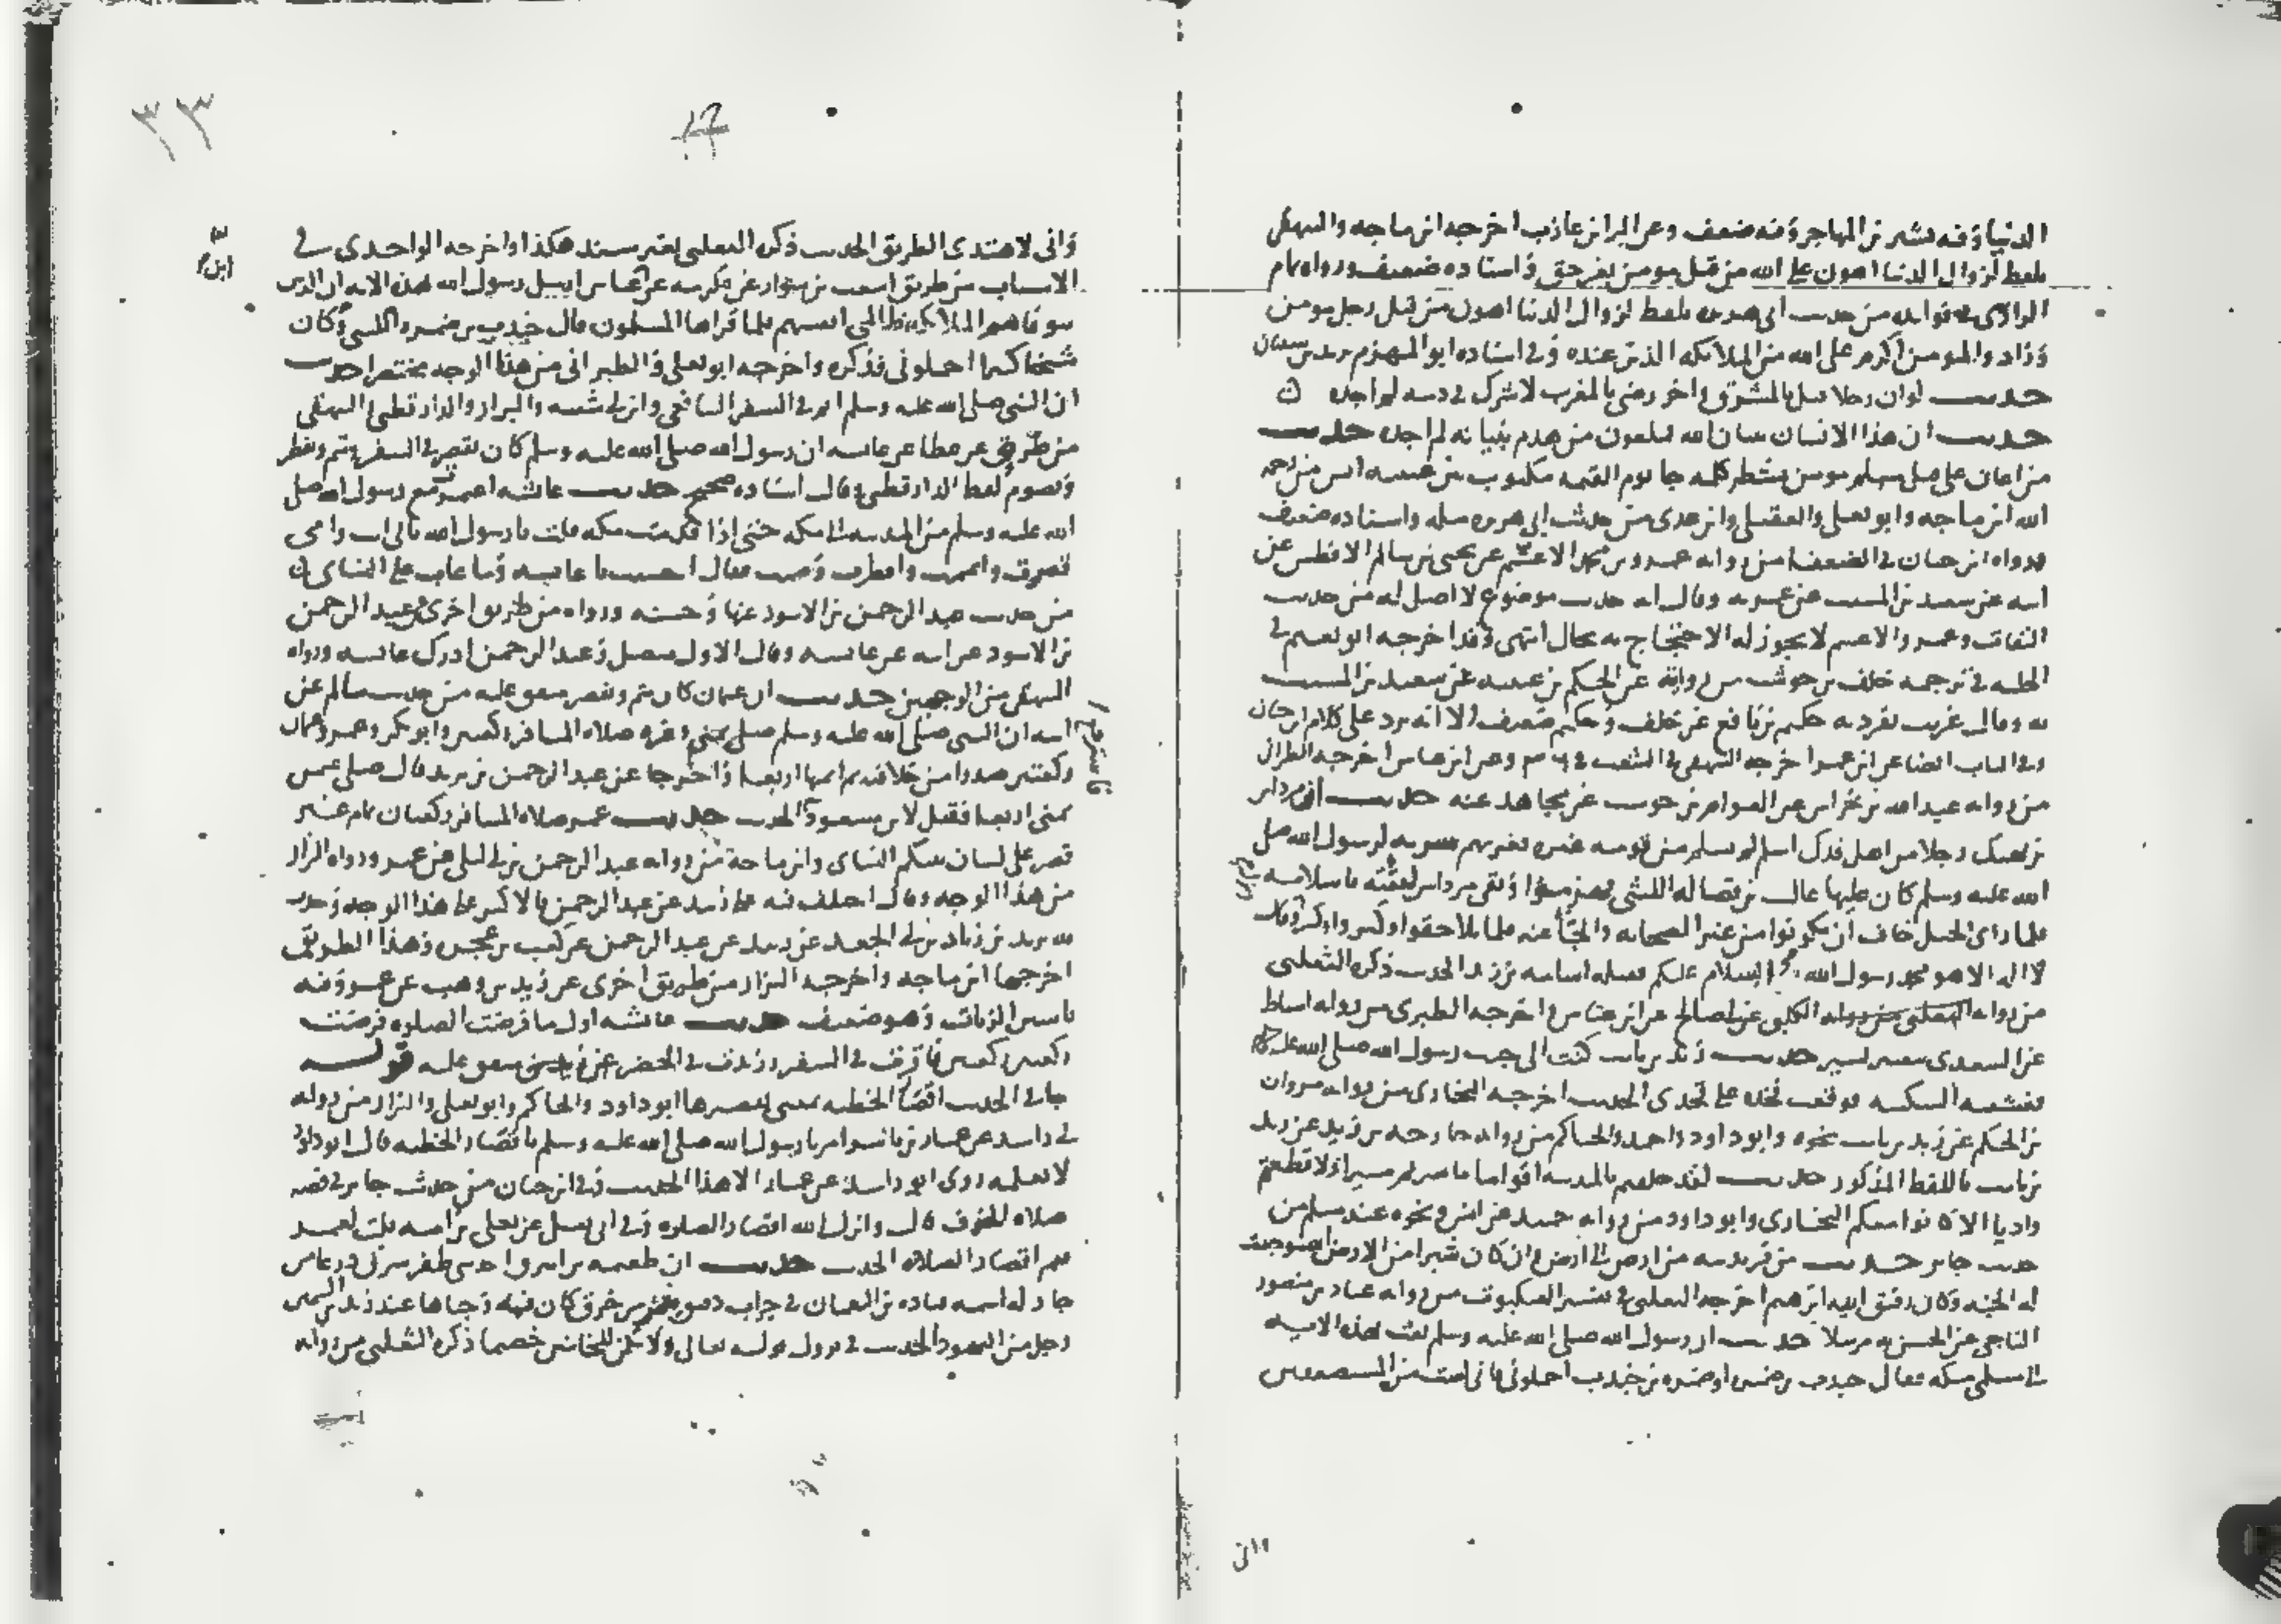 الدنيا وفيه بشر بن المهاجر وفيه ضعف وعن البرا بن عازب اخرجه ابن ماجه والبيهقي
بلفظ لزوال الدنيا اهون على الله من قتل مومن بغير حق واسناده ضعيف ورواه تمام
الرازي في فوايده من حديث ابي هريره بلفظ لزوال الدنيا اهون من قتل رجل مومن
وزاد والمومن اكرم على الله من الملائكه الذين عنده وفي اسناده ابو المهزم يزيد بن سفيان
حديث لو ان رجلا قتل بالمشرق واخر رضي بالمغرب لاشرك في دمه لم اجده
حديث ان هذا الانسان بنيان الله ملعون من هدم بنيانه لم اجده حديث
من اعان على قتل مسلم مومن بشطر كلمه جا يوم القيمه مكتوب بين عينيه ايس من رحمه
الله ابن ماجه وابو يعلى والعقيلي وابن عدي من حديث ابي هريره مثله واسناده ضعيف
ورواه ابن حبان في الضعفا من روايه عمرو بن محمد الاعشم عن يحيى بن سالم الافطس عن
ابيه عن سعيد بن المسيب عن عمر به وقال انه حديث موضوع لا اصل له من حديث
الثقات وعمرو الاعشم لا يجوز له الاحتجاج به بحال انتهى وقد اخرجه ابو نعيم في
الحليه في ترجمه خلف بن حوشب من روايه عن الحكم بن عتيبه عن سعيد بن المسيب
به وقال غريب تفرد به حكيم بن نافع عن خلف وحكيم ضعيف الا انه يرد على كلام ابن حبان
وفي الباب ايضا عن ابن عمر اخرجه البيهقي في الشعب في وعن ابن عباس اخرجه الطبراني
من روايه عبد الله بن خراش عن العوام بن حوشب عن مجاهد عنه حديث ان مرداس
بن نهيك رجلا من اهل فدك اسلم لم يسلم من قومه غيره فغزتهم سريه لرسول الله صلى
الله عليه وسلم كان عليها غالب بن فضاله الليثي وبقي مرداس لثقته باسلامه
فلما راى الخيل خاف ان يكونوا من غير الصحابه والجا غنمه فلما تلاحقوا وكبروا وكبر وقال
لا اله الا هو محمد رسول الله السلام عليكم فقتله اسامه بن زيد الحديث ذكره الثعلبي
من روايه الكلبي عن ابي صالح عن ابن عباس اخرجه الطبري من روايه اسباط
عن السدي حديث زيد بن ثابت كنت الى جنب رسول الله صلى الله عليه
فغشيته السكينه فوقعت فخذه على فخذي الحديث اخرجه البخاري من روايه مروان
بن الحكم عن زيد بن ثابت نحوه وابو داود واحمد والحاكم من روايه خارجه بن زيد عن زيد
بن ثابت باللفظ المذكور حديث لقد خلفتم بالمدينه اقواما ما سرتم مسيرا ولا قطعتم
واديا الا كانوا معكم البخاري وابو داود من روايه حميد عن انس ونحوه عند مسلم من
حديث جابر حديث من فر بدينه من ارض الى ارض وان كان شبرا من الارض استوجبت
له الجنه وكان رفيق ابيه ابرهيم اخرجه الثعلبي في تفسير العنكبوت من روايه عباد بن منصور
الناجي عن الحسن به مرسلا حديث ان رسول الله صلى الله عليه وسلم بعث بهذه الايه
الى مسلمي مكه فقال جندب بن ضمره او ضمره بن جندب احملوني فاني لست من المستضعفين
٣٣
ابن
واني لاهتدي الطريق الحديث ذكره الثعلبي بغير سند هكذا واخرجه الواحدي في
الاسباب من طريق اشعث بن سوار عن عكرمه عن ابن عباس رسول الله بهذه الايه ان الذين
توفاهم الملائكه ظالمي انفسهم فلما قراها المسلمون قال جندب بن ضمره الليثي وكان
شيخا كبيرا احملوني فذكره واخرجه ابو يعلى والطبراني من هذا الوجه مختصرا حديث
ان النبي صلى الله عليه وسلم اتم في السفر الشافعي وابن ابي شيبه والبزار والدارقطني البيهقي
من طرق عن عطا عن عايشه ان رسول الله صلى الله عليه وسلم كان يقصر في السفر ويتم ويفطر
ويصوم لفظ الدارقطني وقال اسناده صحيح حديث عائشه اعتمرت مع رسول الله صلى
الله عليه وسلم من المدينه الى مكه حتى اذا قدمت مكه قلت يا رسول الله بابي انت وامي
قصرت واتممت وافطرت وصمت فقال احسنت يا عايشه وما عاب علي النساي
من حديث عبد الرحمن بن الاسود عنها وحسنه ورواه من طريق اخرى عن عبد الرحمن
بن الاسود عن ابيه عن عايشه وقال الاول متصل وعبد الرحمن ادرك عايشه ورواه
البيهقي من الوجهين حديث ان عثمان كان يتم ويقصر متفق عليه من حديث سالم عن
ابيه ان النبي صلى الله عليه وسلم صلى بمنى وغيره صلاه المسافر ركعتين وابو بكر وعمر وعثمان
ركعتين صدرا من خلافته ثم اتمها اربعا واخرجا عن عبد الرحمن بن يزيد قال صلى عثمن
بمنى اربعا فقيل لابن مسعود الحديث حديث عمر صلاه المسافر ركعتان تمام غير
قصر على لسان نبيكم النساي وابن ماجه من روايه عبد الرحمن بن ابي ليلى عن عمر ورواه البزار
من هذا الوجه وقال اختلف فيه على زبيد عن عبد الرحمن فالاكثر على هذا الوجه وحدث
به يزيد بن زياد بن ابي الجعد عن زبيد عن عبد الرحمن عن كعب بن عجره وهذا الطريق
اخرجها ابن ماجه واخرجه البزار من طريق اخرى عن زيد بن وهب عن عمر وفيه
ياسين الزيات وهو ضعيف حديث عائشه اول ما فرضت الصلوه فرضت
ركعتين ركعتين فاقرت في السفر وزيدت في الحضر متفق عليه قوله
جا في الحديث اقصار الخطبه بمعنى تقصيرها ابو داود والحاكم وابو يعلى والبزار من روايه
ابي راشد عن عمار بن ياسر امرنا رسول الله صلى الله عليه وسلم باقصار الخطبه قال ابو داود
لا نعلمه روى ابو راشد عن عمار الا هذا الحديث وفي ابن حبان من حديث جابر في قصه
صلاه الخوف قال وانزل الله اقصار الصلوه وفي ابي يعلى عن يعلى بن اميه قلت لعمر
فيم اقصار الصلاه الحديث حديث ان طعمه بن ابيرق احد بني ظفر سرق درعا من
جار له اسمه قتاده بن النعمان في جراب دقيق من خرق كان فيه وخباها عند زيد بن السمين
رجل من اليهود الحديث في نزول قوله تعالى ولا تكن للخائنين خصيما ذكره الثعلبي من روايه